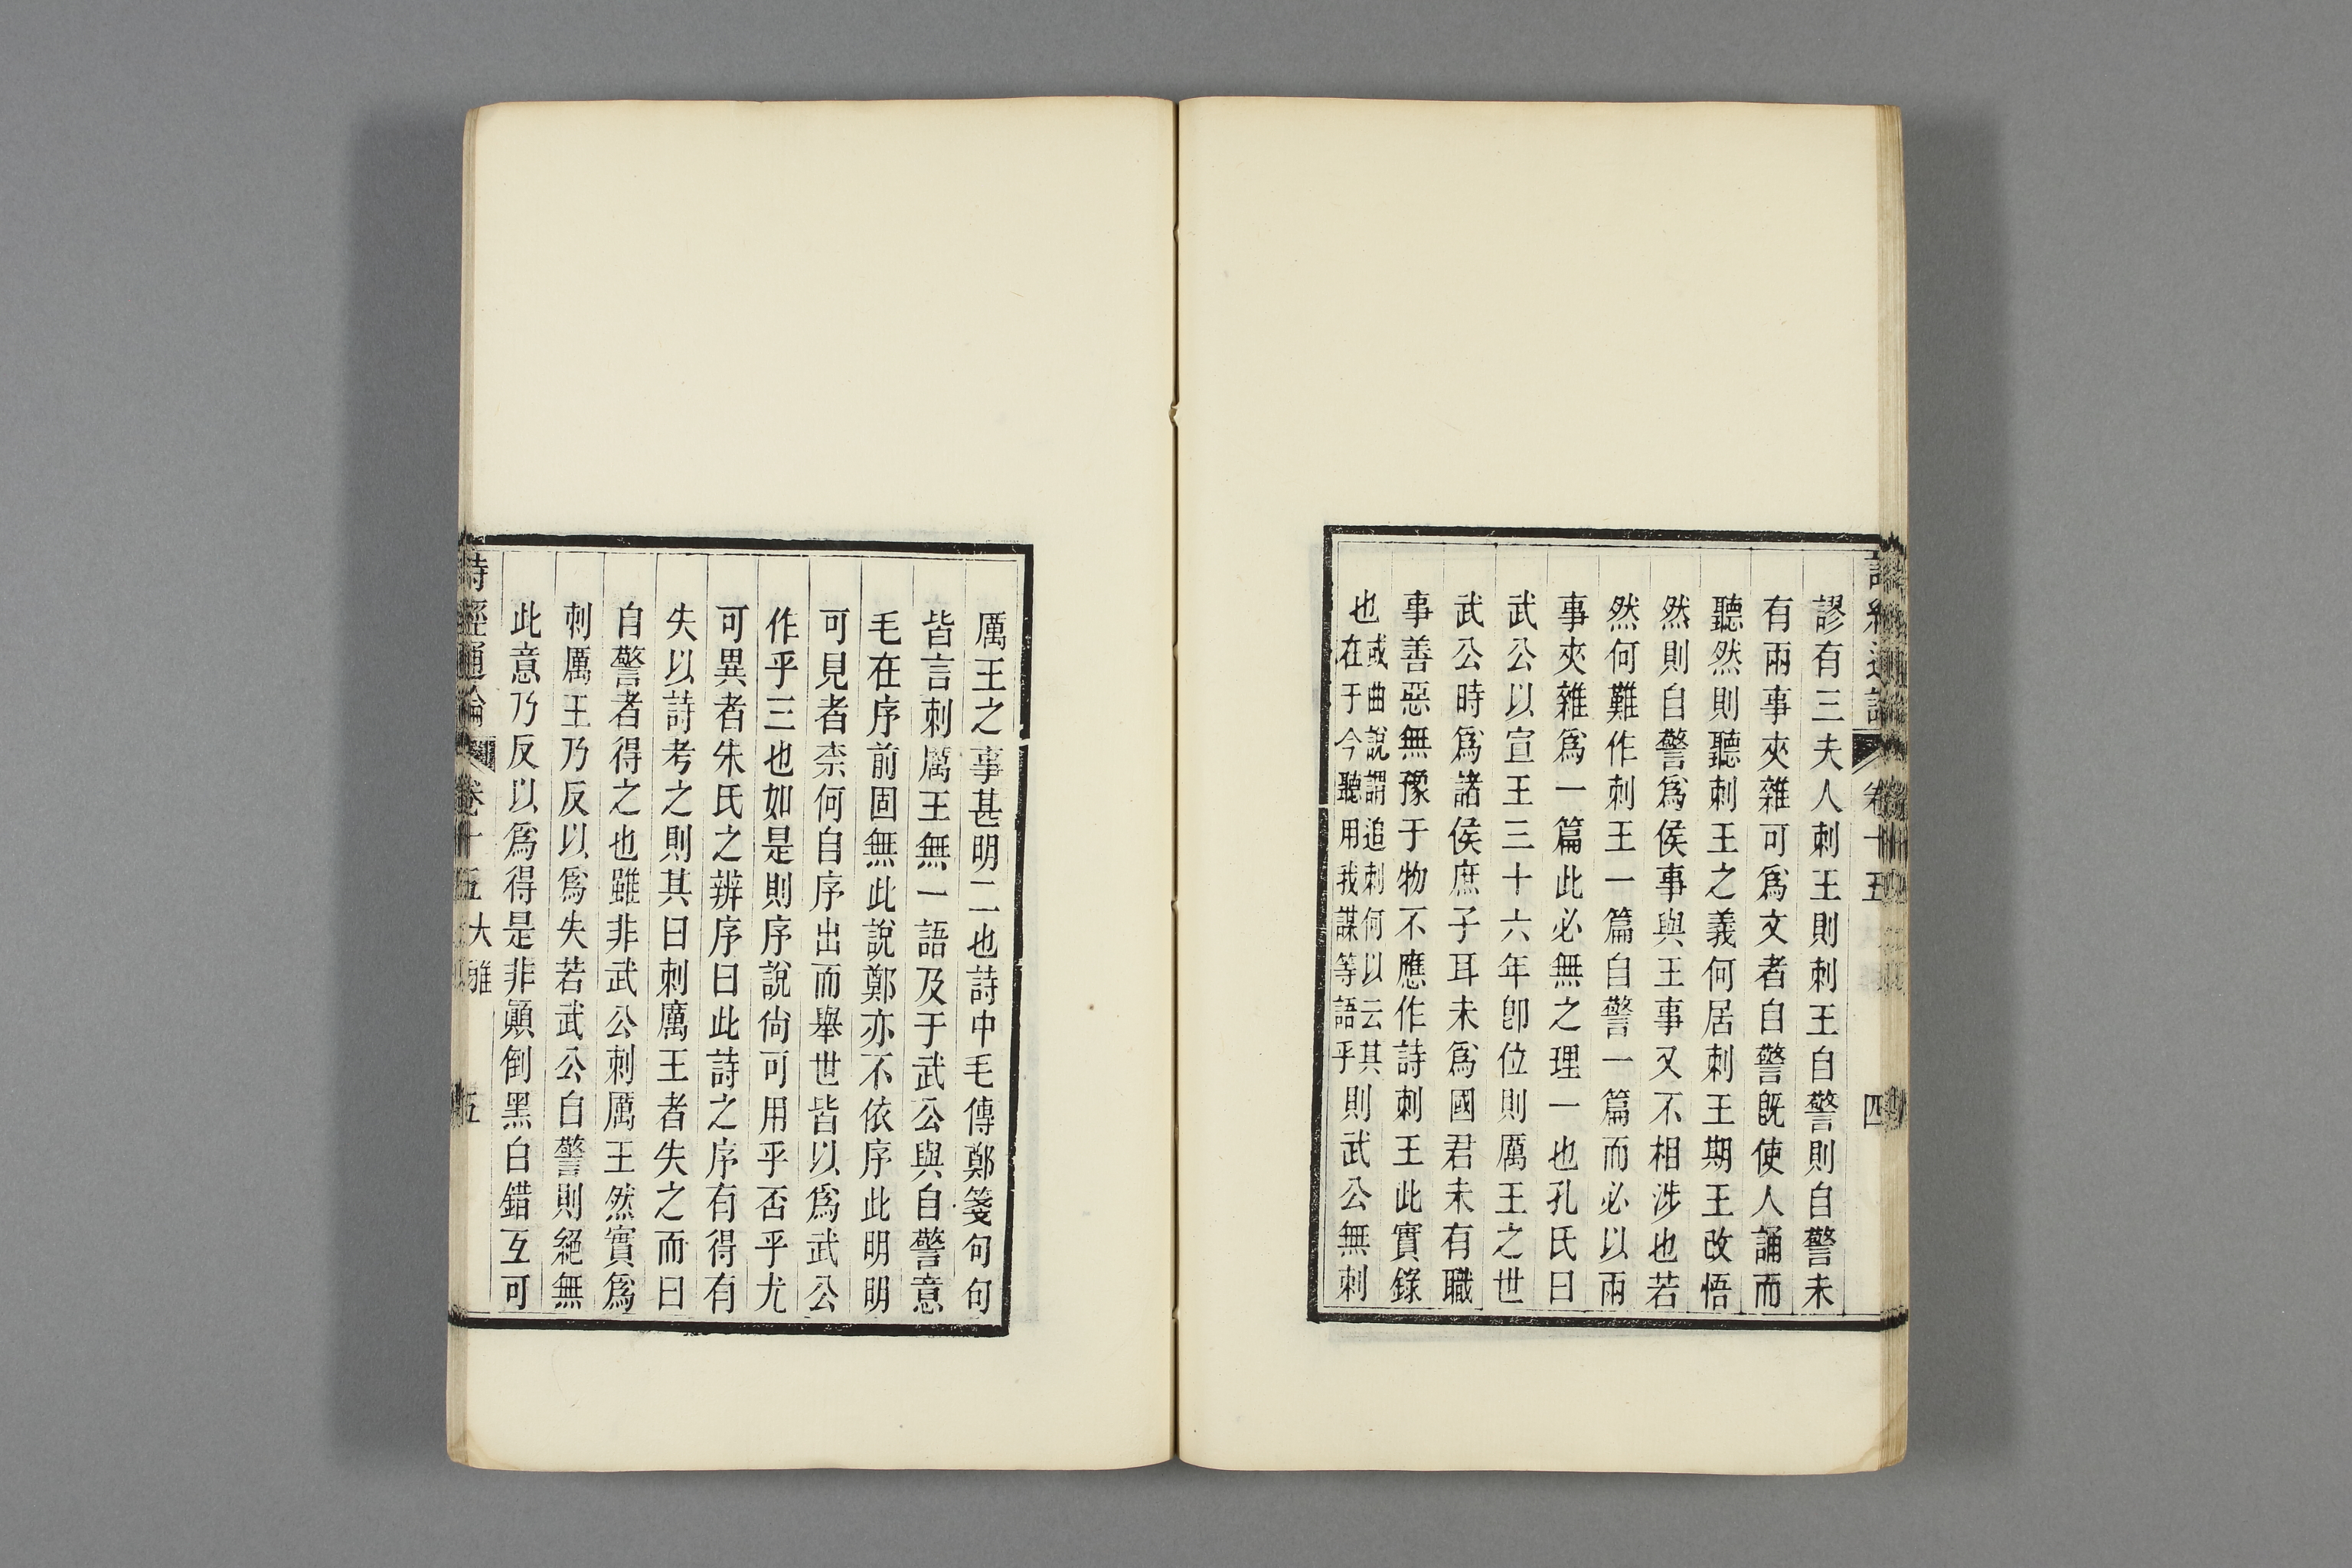 謬有三夫人刺王則刺王自警則自警未
有兩事夾雜可爲文者自警旣使人誦而
聽然則聽刺王之義何居刺王期王改悟
然則自警爲侯事與王事又不相涉也若
然何難作刺王一篇自警一篇而必以兩
事夾雜爲一篇此必無之理一也孔氏曰
武公以宣王三十六年卽位則厲王之世
武公時爲諸侯庶子耳未爲國君未有職
事善惡無豫于物不應作詩刺王此實錄
也或曲說謂追刺何以云其在于今聽用我謀等語乎則武公無刺
卷十五
四
厲王之事甚明二也詩中毛傳鄭箋句句
皆言刺厲王無一語及于武公與自警意
毛在序前固無此說鄭亦不依序此明明
可見者柰何自序出而舉世皆以爲武公
作乎三也如是則序說尙可用乎否乎尤
可異者朱氏之辨序曰此詩之序有得有
失以詩考之則其曰刺厲王者失之而曰
自警者得之也雖非武公刺厲王然實爲
刺厲王乃反以爲失若武公自警則絕無
此意乃反以爲得是非顚倒黑白錯互可
詩經通論
卷十五
大雅
五